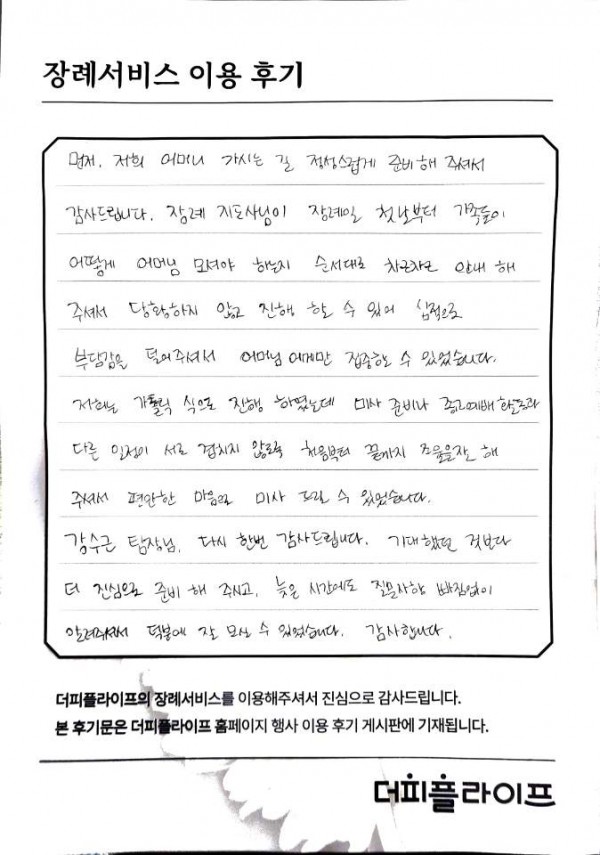 장례서비스 이용 후기
먼저, 저희 어머니 가시는 길 정성스럽게 준비해 주셔서
감사드립니다. 장례 지도사님이 장례일 첫날부터 가족들이
어떻게 어머님 모셔야 하는지 순서대로 차근차근 안내 해
주셔서 당황하지 않고 진행 할 수 있어 심적으로
부담감을 덜어주셔서 어머님에게만 집중하는 수 있었습니다.
저희는 가톨릭 식으로 진행 하였는데 미사 준비나 종교예배
다른 일정이 서로 겹치지 않도록 처음부터 끝까지 조율을잘 해
주셔서 편안한 마음으로 미사 드릴 수 있었습니다.
강수근 팀장님, 다시 한번 감사드립니다. 기대했던 것보다
더 진심으로 준비 해 주시고, 늦은 시간에도 질문사항 빠짐없이
알려주셔서 덕분에 잘 모실 수 있었습니다. 감사합니다.
더피플라이프의 장례서비스를 이용해주셔서 진심으로 감사드립니다.
본 후기문은 더피플라이프 홈페이지 행사 이용 후기 게시판에 기재됩니다.
더피플라이프